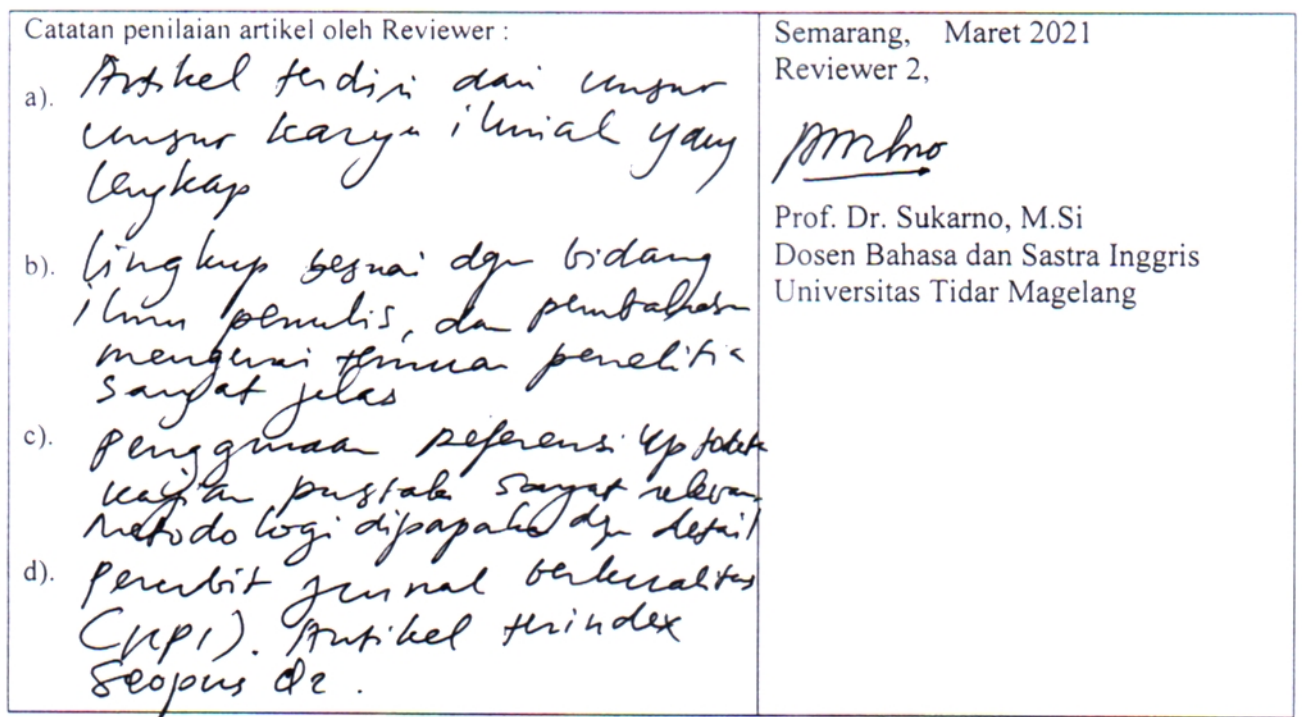 Catatan penilaian artikel oleh Reviewer :
a). Artikel terdiri dari unsur
unsur karya ilmiah yang
lengkap
b). lingkup sesuai dgn bidang
ilmu penulis, dan pembahasan
mengenai temuan penelitia
sangat jelas
c). Penggunaan referensi up todate
kajian pustaka sangat relevan
Metodologi dipaparkan dgn detail
d). Penerbit jurnal berkualitas
(UPI). Artikel terindex
Scopus Q2.
Semarang, Maret 2021
Reviewer 2,
Prof. Dr. Sukarno, M.Si
Dosen Bahasa dan Sastra Inggris
Universitas Tidar Magelang